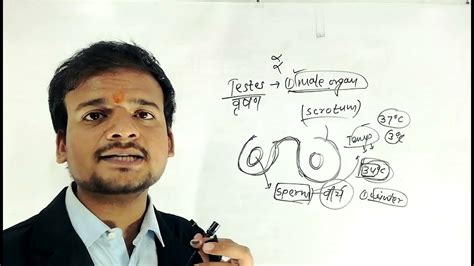 Testes → ① male organ
वृषण
scrotum
37°C
Temp 3°C
34°C
sperm वीर्य ① winter